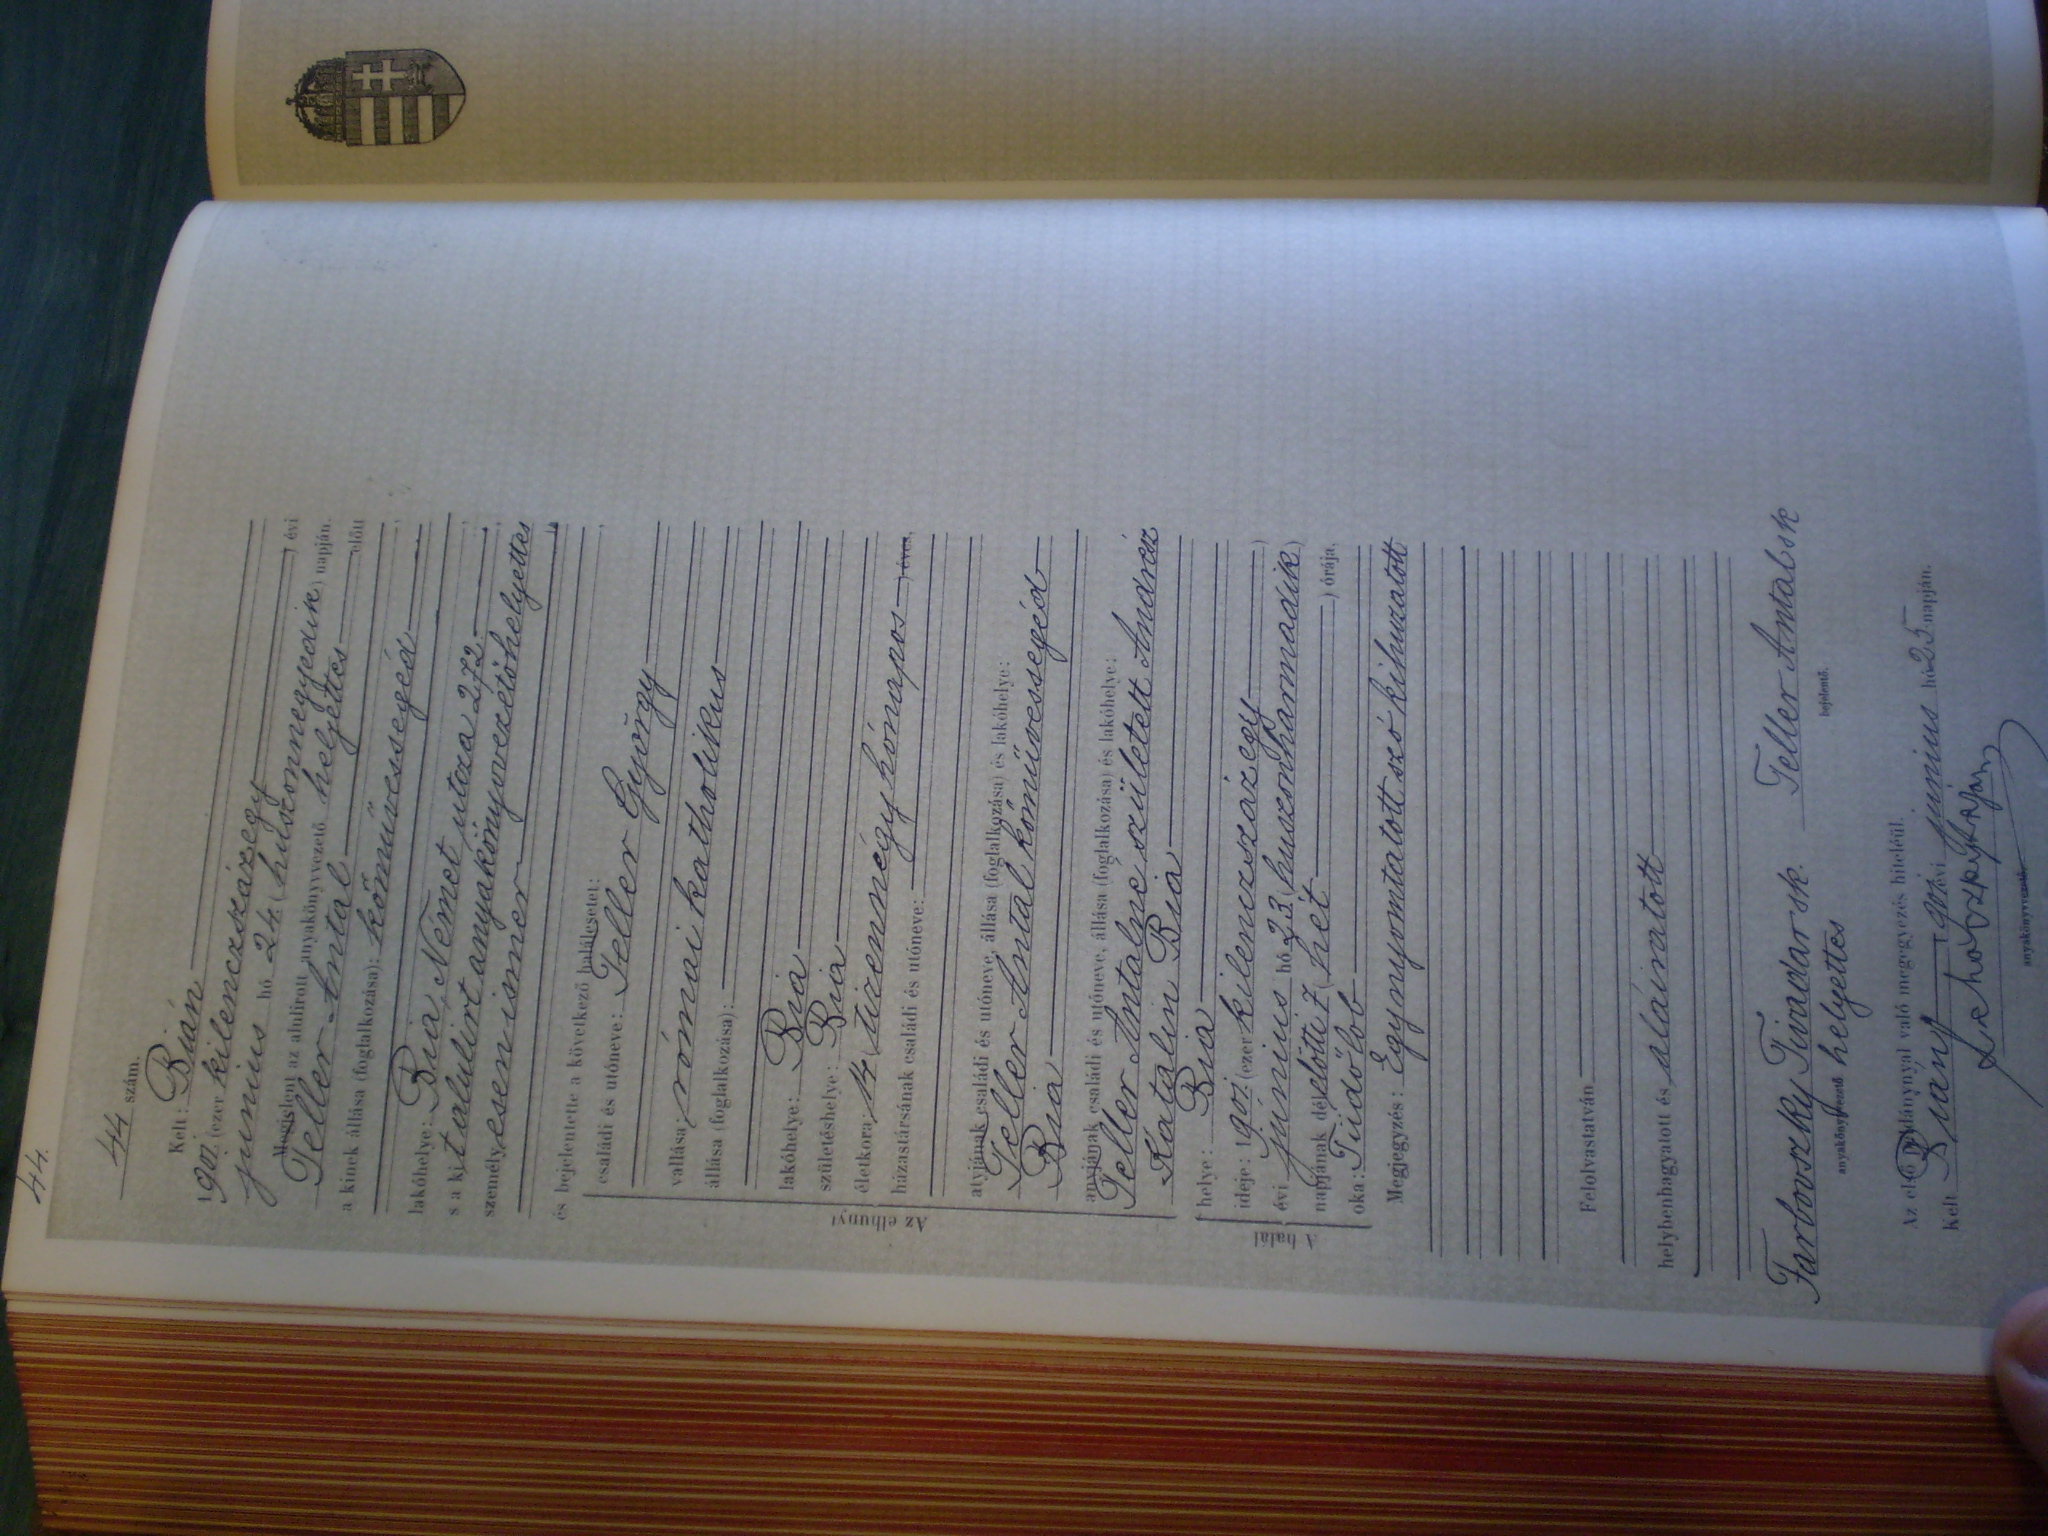 44.
44 szám.
Kelt: Bián
1901 (ezer kilenczszázegy) évi
junius hó 24 (huszonnegyedik) napján.
Megjelent az alulirott anyakönyvvezető helyettes előtt
Teller Antal
a kinek állása (foglalkozása): kőművessegéd
lakóhelye: Bia Német utcza 272
s a kit alulirt anyakönyvvezetőhelyettes
személyesen ismer
és bejelentette a következő halálesetet:
Az elhunyt
családi és utóneve: Teller György
vallása: római katholikus
állása (foglalkozása):
lakóhelye: Bia
születéshelye: Bia
életkora: 14 (tizennégy hónapos) éves,
házastársának családi és utóneve:
atyjának családi és utóneve, állása (foglalkozása) és lakóhelye:
Teller Antal kőművessegéd
Bia
anyjának családi és utóneve, állása (foglalkozása) és lakóhelye:
Teller Antalné született Andrész
Katalin Bia
A halál
helye: Bia
ideje: 1901 (ezer kilenczszázegy)
évi junius hó 23 (huszonharmadik)
napjának délelőtti 7 (hét) órája,
oka: Tüdőlob
Megjegyzés: Egy nyomtatott szó kihuzatott
Felolvastatván
helybenhagyatott és aláiratott
Farbovszky Tivadar sk. Teller Antal sk
anyakönyvvezető helyettes bejelentő.
Az első példánynyal való megegyezés hiteléül.
Kelt Bián, 1901 évi junius hó 25 napján.
anyakönyvvezető.